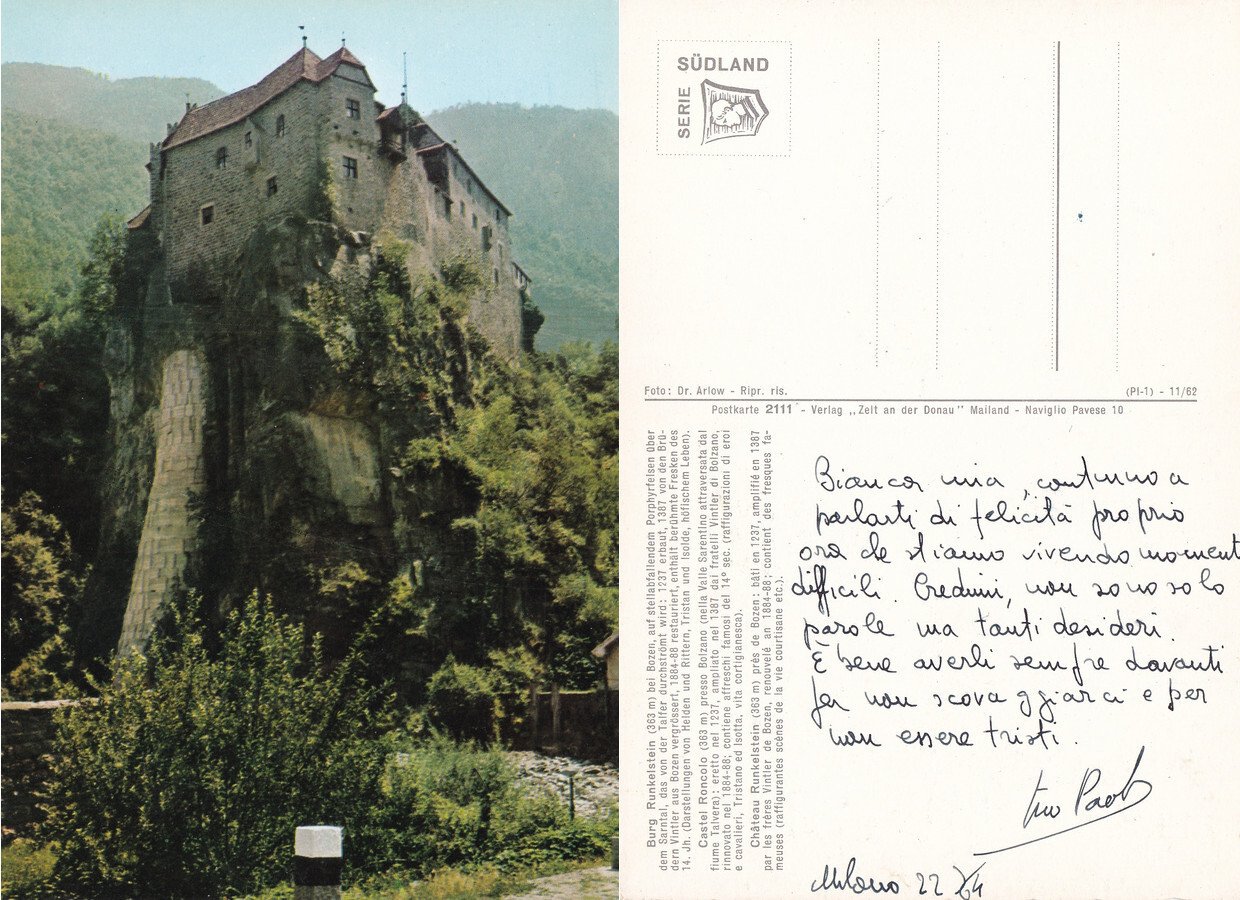 SÜDLAND
SERIE
Foto: Dr. Arlow - Ripr. ris.
(PI-1) - 11/62
Postkarte 2111 - Verlag „Zelt an der Donau" Mailand - Naviglio Pavese 10
Burg Runkelstein (363 m) bei Bozen, auf steilabfallendem Porphyrfelsen über
dem Sarntal, das von der Talfer durchströmt wird: 1237 erbaut, 1387 von den Brü-
dern Vintler aus Bozen vergrössert, 1884-88 restauriert, enthält berühmte Fresken des
14. Jh. (Darstellungen von Helden und Rittern, Tristan und Isolde, höfischem Leben).
Castel Roncolo (363 m) presso Bolzano (nella Valle Sarentino attraversata dal
fiume Talvera): eretto nel 1237, ampliato nel 1387 dai fratelli Vintler di Bolzano,
rinnovato nel 1884-88; contiene affreschi famosi del 14º sec. (raffigurazioni di eroi
e cavalieri, Tristano ed Isotta, vita cortigianesca).
Château Runkelstein (363 m) près de Bozen: bâti en 1237, amplifié en 1387
par les frères Vintler de Bozen, renouvelé an 1884-88; contient des fresques fa-
meuses (raffigurantes scènes de la vie courtisane etc.).
Bianca mia, continuo a
parlarti di felicità proprio
ora che stiamo vivendo momenti
difficili. Credimi, non sono solo
parole ma tanti desideri.
È bene averli sempre davanti
per non scoraggiarci e per
non essere tristi.
tuo Paolo
Milano 22